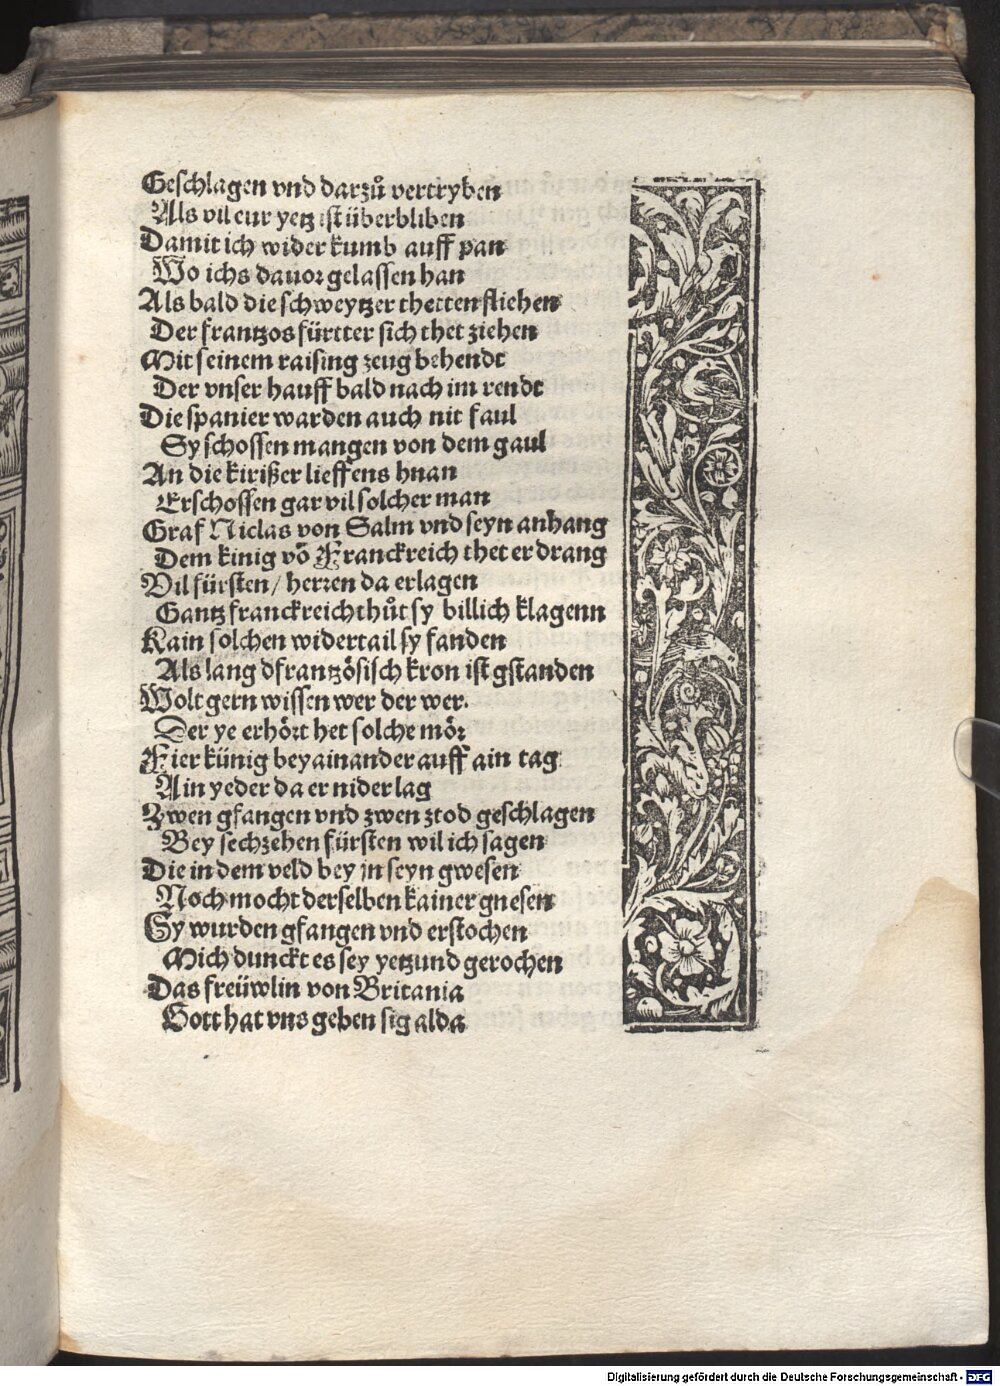 Geschlagen vnd darzuͦ vertryben
Als vil eur yetz ist überbliben
Damit ich wider kumb auff pan
Wo ichs dauor gelassen han
Als bald die schweytzer thetten fliehen
Der frantzos fürtter sich thet ziehen
Mit seinem raising zeug behendt
Der vnser hauff bald nach im rendt
Die spanier warden auch nit faul
Sy schossen mangen von dem gaul
An die kirißer lieffens hnan
Erschossen gar vil solcher man
Graf Niclas von Salm vnd seyn anhang
Dem kinig võ Franckreich thet er drang
Vil fürsten / herren da erlagen
Gantz franckreich thuͦt sy billich klagenn
Kain solchen widertail sy fanden
Als lang dfrantzösisch kron ist gstanden
Wolt gern wissen wer der wer.
Der ye erhört het solche mör
Fier künig bey ainander auff ain tag
Ain yeder da er nider lag
Zwen gfangen vnd zwen ztod geschlagen
Bey sechzehen fürsten wil ich sagen
Die in dem veld bey jn seyn gwesen
Noch mocht derselben kainer gnesen
Sy wurden gfangen vnd erstochen
Mich dunckt es sey yetzund gerochen
Das freüwlin von Britania
Gott hat vns geben sig alda
Digitalisierung gefördert durch die Deutsche Forschungsgemeinschaft - DFG